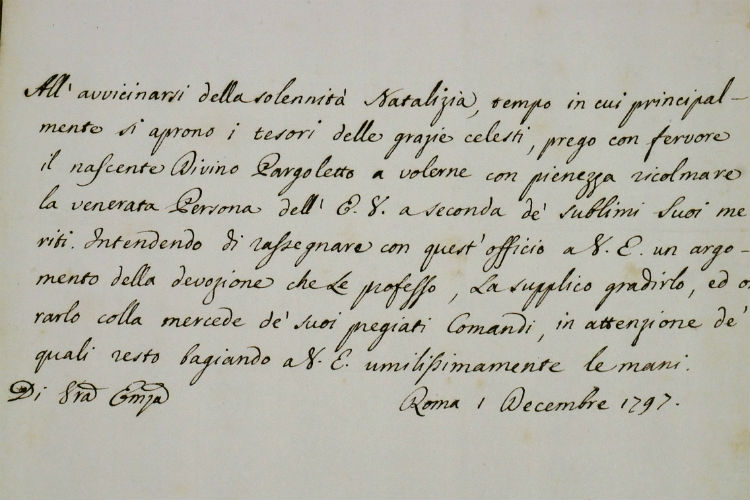 All' avvicinarsi della solennità Natalizia, tempo in cui principal-
mente si aprono i tesori delle grazie celesti, prego con fervore
il nascente Divino Pargoletto a volerne con pienezza ricolmare
la venerata Persona dell' E. V. a seconda de' sublimi suoi me
riti. Intendendo di rassegnare con quest' officio a V. E. un argo-
mento della devozione che Le professo, La supplico gradirlo, ed o
rarlo colla mercede de' suoi pregiati Comandi, in attenzione de'
quali resto bagiando a V. E. umilissimamente le mani.
Di Vra Emza
Roma 1 Decembre 1797.